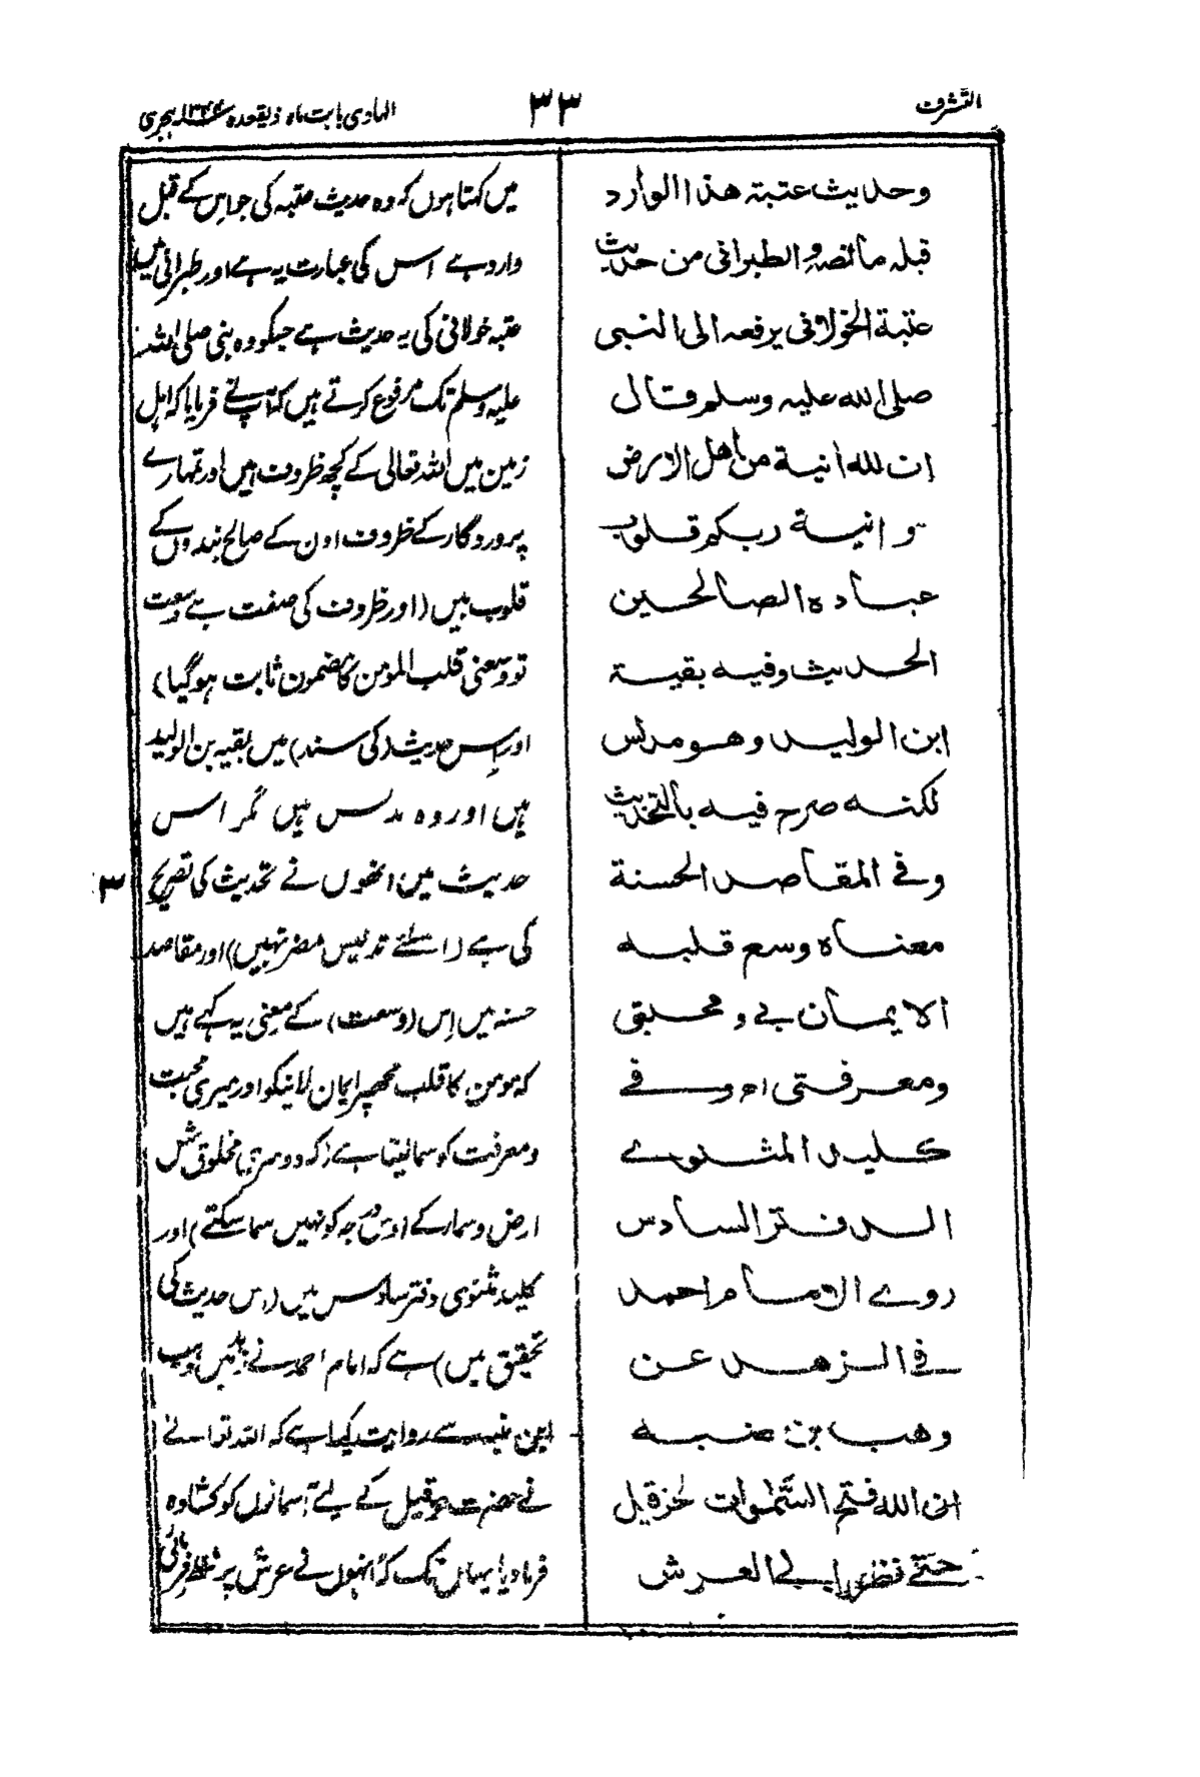 التشرف
٣٣
الہادی بابت ماہ ذیقعدہ ۱۳۴۴ ہجری
وحديث عتبة هذا الوارد
قبله ما نصه و الطبرانی من حديث
عتبة الخولانی يرفعه الی النبی
صلی الله عليه وسلم قال
ان لله انية من اهل الارض
و انية ربكم قلوب
عباده الصالحين
الحديث وفيه بقية
ابن الوليد وهو مدلس
لكنه صرح فيه بالتحديث
وفے المقاصد الحسنة
معناه وسع قلبه
الايمان بے و محبتی
ومعرفتی اھ وفے
کلید المثنوے
الدفتر السادس
روے الامام احمد
فے الزهد عن
وهب بن منبه
ان الله فتح السَّمٰوات لحزقيل
حتّے نظر الے العرش
میں کہتا ہوں کہ وہ حدیث عتبہ کی جو اس کے قبل
وارد ہے اس کی عبارت یہ ہے اور طبرانی میں
عتبہ خولانی کی یہ حدیث ہے جسکو وہ نبی صلی اللہ
علیہ وسلم تک مرفوع کرتے ہیں کہ آپ نے فرمایا کہ اہل
زمین میں اللہ تعالی کے کچھ ظروف ہیں اور تمہارے
پروردگار کے ظروف اون کے صالح بندوں کے
قلوب ہیں (اور ظروف کی صفت ہے وسعت
تو وسعنی قلب المؤمن کا مضمون ثابت ہو گیا)
اور اِس حدیث (کی سند) میں بقیہ بن الولید
ہیں اور وہ مدلس ہیں مگر اس
حدیث میں انھوں نے تحدیث کی تصریح
۳
کی ہے (اسلئے تدلیس مضر نہیں) اور مقاصد
حسنہ میں اِس (وسعت) کے معنی یہ کہے ہیں
کہ مومن کا قلب مجھپر ایمان لانیکو اور میری محبت
ومعرفت کو سما لیتا ہے (کہ دوسری مخلوق مثل
ارض وسمار کے اوس درجہ کو نہیں سما سکتے) اور
کلید مثنوی دفتر سادس میں (اس حدیث کی
تحقیق میں) ہے کہ امام احمد نے زہد میں وہب
ابن منبہ سے روایت کیا ہے کہ اللہ تعالے
نے حضرت حزقیل کے لیے آسمانوں کو کشادہ
فرما دیا یہاں تک کہ انہوں نے عرش پر نظر فرمائی